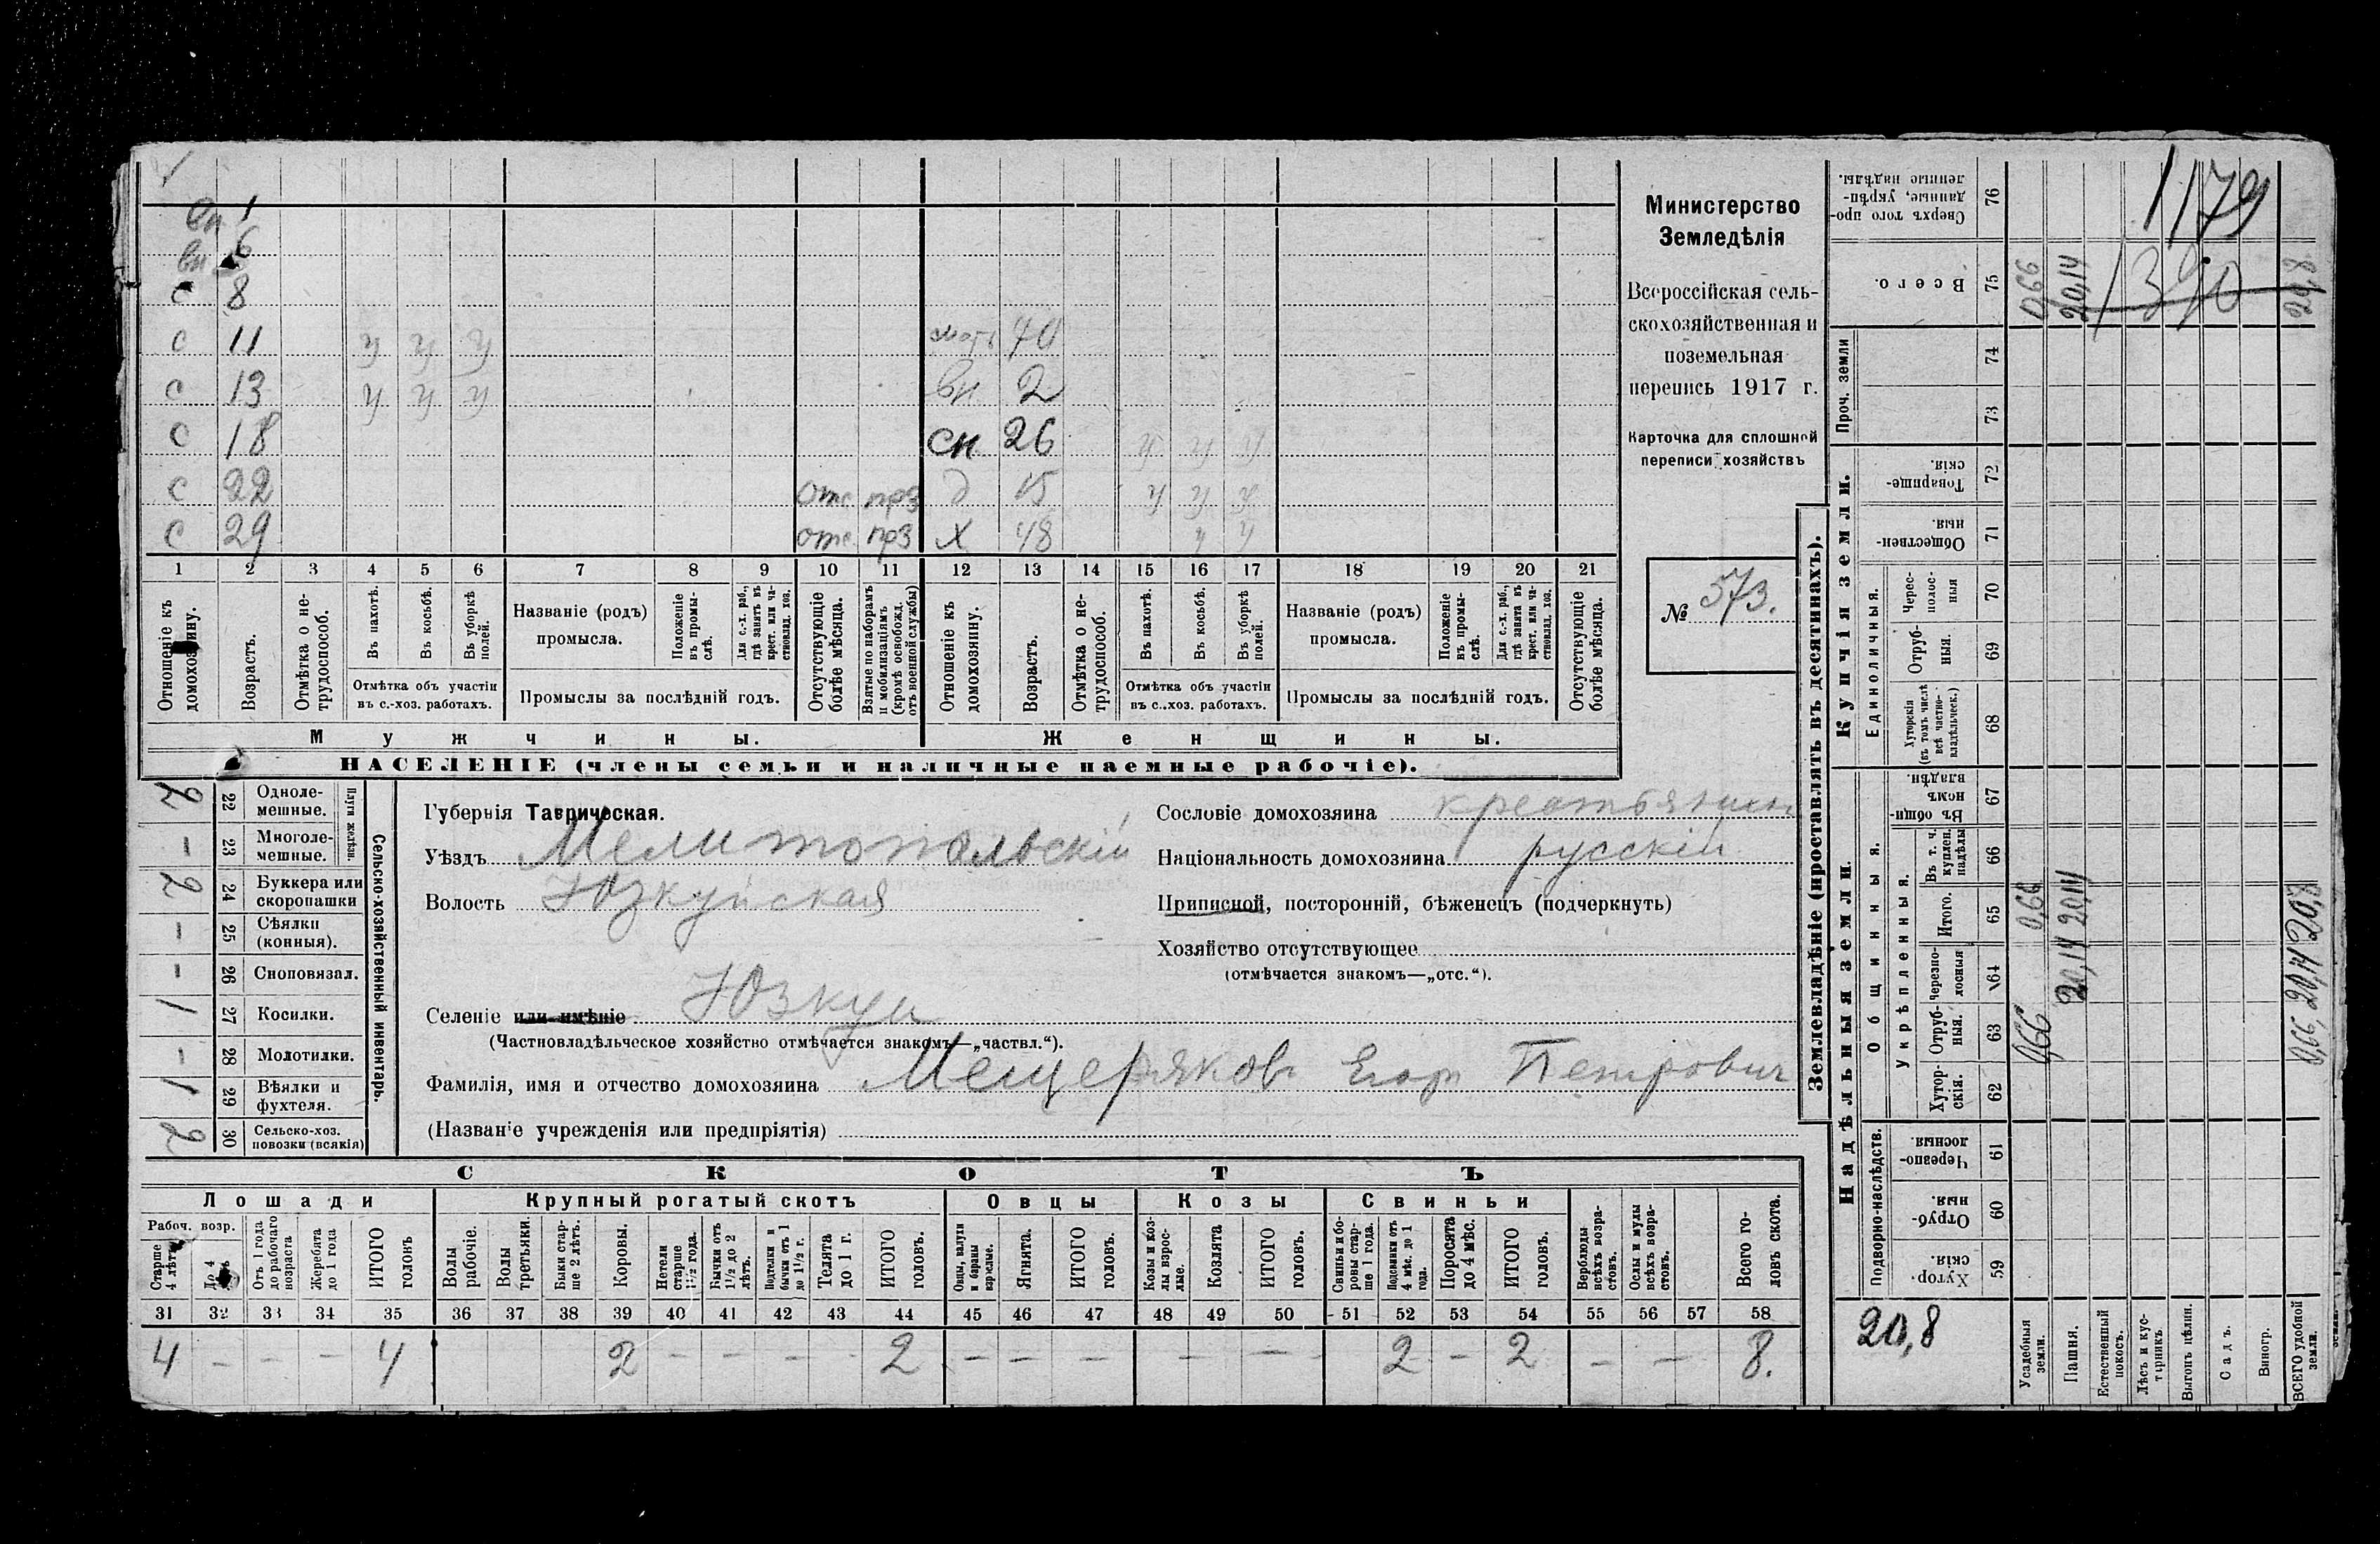 вн 1
вн 6
с 8
с 11 у у у мать 70
с 13 у у у вн 2
с 18 сн 26 у у у
с 22 отс прз д 15 у у у
с 29 отс прз Х 48 у у
1 2 3 4 5 6 7 8 9 10 11 12 13 14 15 16 17 18 19 20 21
Отношеніе къ домохозяину.
Возрастъ.
Отмѣтка о не-трудоспособ.
Въ пахотѣ.
Въ косьбѣ.
Въ уборкѣ полей.
Отмѣтка объ участіи
въ с.-хоз. работахъ.
Названіе (родъ)
промысла.
Положеніе въ промы-слѣ.
Для с.-х. раб., гдѣ занятъ въ крест. или ча-стновлад. хоз.
Промыслы за послѣдній годъ.
Отсутствующіе болѣе мѣсяца.
Взятые по наборамъ и мобилизаціямъ (кромѣ освобожд. отъ военной службы)
Отношеніе къ домохозяину.
Возрастъ.
Отмѣтка о не-трудоспособ.
Въ пахотѣ.
Въ косьбѣ.
Въ уборкѣ полей.
Отмѣтка объ участіи
въ с.-хоз. работахъ.
Названіе (родъ)
промысла.
Положеніе въ промы-слѣ.
Для с.-х. раб., гдѣ занята въ крест. или ча-стновлад. хоз.
Промыслы за послѣдній годъ.
Отсутствующіе болѣе мѣсяца.
Мужчины. Женщины.
НАСЕЛЕНІЕ (члены семьи и наличные наемные рабочіе).
Министерство
Земледѣлія
Всероссійская сель-
скохозяйственная и
поземельная
перепись 1917 г.
Карточка для сплошной
переписи хозяйствъ
№ 573.
Сельско-хозяйственный инвентарь.
Плуги желѣзн.
2 22 Одноле-мешные.
– 23 Многоле-мешные.
2 24 Буккера или скоропашки
– 25 Сѣялки (конныя).
– 26 Сноповязал.
1 27 Косилки.
– 28 Молотилки.
1 29 Вѣялки и фухтеля.
2 30 Сельско-хоз. повозки (всякія)
Губернія Таврическая.
Уѣздъ Мелитопольскій
Волость Юзкуйская
Селеніе или имѣніе Юзкуи
(Частновладѣльческое хозяйство отмѣчается знакомъ—„частвл.“).
Фамилія, имя и отчество домохозяина Мещеряков Егор Петрович
(Названіе учрежденія или предпріятія)
Сословіе домохозяина крестьянин
Національность домохозяина русскій
Приписной, посторонній, бѣженецъ (подчеркнуть)
Хозяйство отсутствующее
(отмѣчается знакомъ—„отс.“).
СКОТЪ
Лошади Крупный рогатый скотъ Овцы Козы Свиньи
Рабоч. возр.
Старше 4 лѣтъ
До 4
Отъ 1 года до рабочаго возраста
Жеребята до 1 года
ИТОГО головъ
Волы рабочіе.
Волы третьяки.
Быки стар-ше 2 лѣтъ.
Коровы.
Нетели старше 1½ года.
Бычки отъ 1½ до 2 лѣтъ.
Подтелки и бычки отъ 1 до 1½ г.
Телята до 1 г.
ИТОГО головъ.
Овцы, валухи и бараны взрослые.
Ягнята.
ИТОГО головъ.
Козы и коз-лы взрос-лые.
Козлята
ИТОГО головъ.
Свиньи и бо-ровы стар-ше 1 года.
Подсвинки отъ 4 мѣс. до 1 года.
Поросята до 4 мѣс.
ИТОГО головъ.
Верблюды всѣхъ возра-стовъ.
Ослы и мулы всѣхъ возра-стовъ.
Всего го-ловъ скота.
31 32 33 34 35 36 37 38 39 40 41 42 43 44 45 46 47 48 49 50 51 52 53 54 55 56 57 58
4 – – – 4 2 – – – – 2 – – – – – – 2 – 2 – – 8.
Землевладѣніе (проставлять въ десятинахъ).
Купчія земли.
Надѣльныя земли.
Проч. земли
Единоличныя.
Общинныя.
Укрѣпленныя.
Подворно-наслѣдств.
Сверхъ того про-данные, укрѣп-ленные надѣлы. 76
Всего. 75
74
73
Товарище-скія. 72
Обществен-ныя. 71
Черес-полос-ныя 70
Отруб-ныя. 69
Хуторскія (въ томъ числѣ всѣ частно-владѣльческ.) 68
Въ общин-номъ владѣн. 67
Въ т. ч. куплен. надѣлы 66
Итого. 65
Черезпо-лосныя 64
Отруб-ныя. 63
Хутор-скія. 62
Черезпо-лосныя 61
Отруб-ныя. 60
Хутор-скія. 59
1179
1390
20,8
Усадебныя земли. 0,66 0,66 0,66
Пашня. 20,14 20,14 20,14
Естественный покосъ.
Лѣсъ и кус-тарникъ
Выгонъ цѣлин.
Садъ.
Виногр.
ВСЕГО удобной земли. 0,66 20,14 20,8 20,8